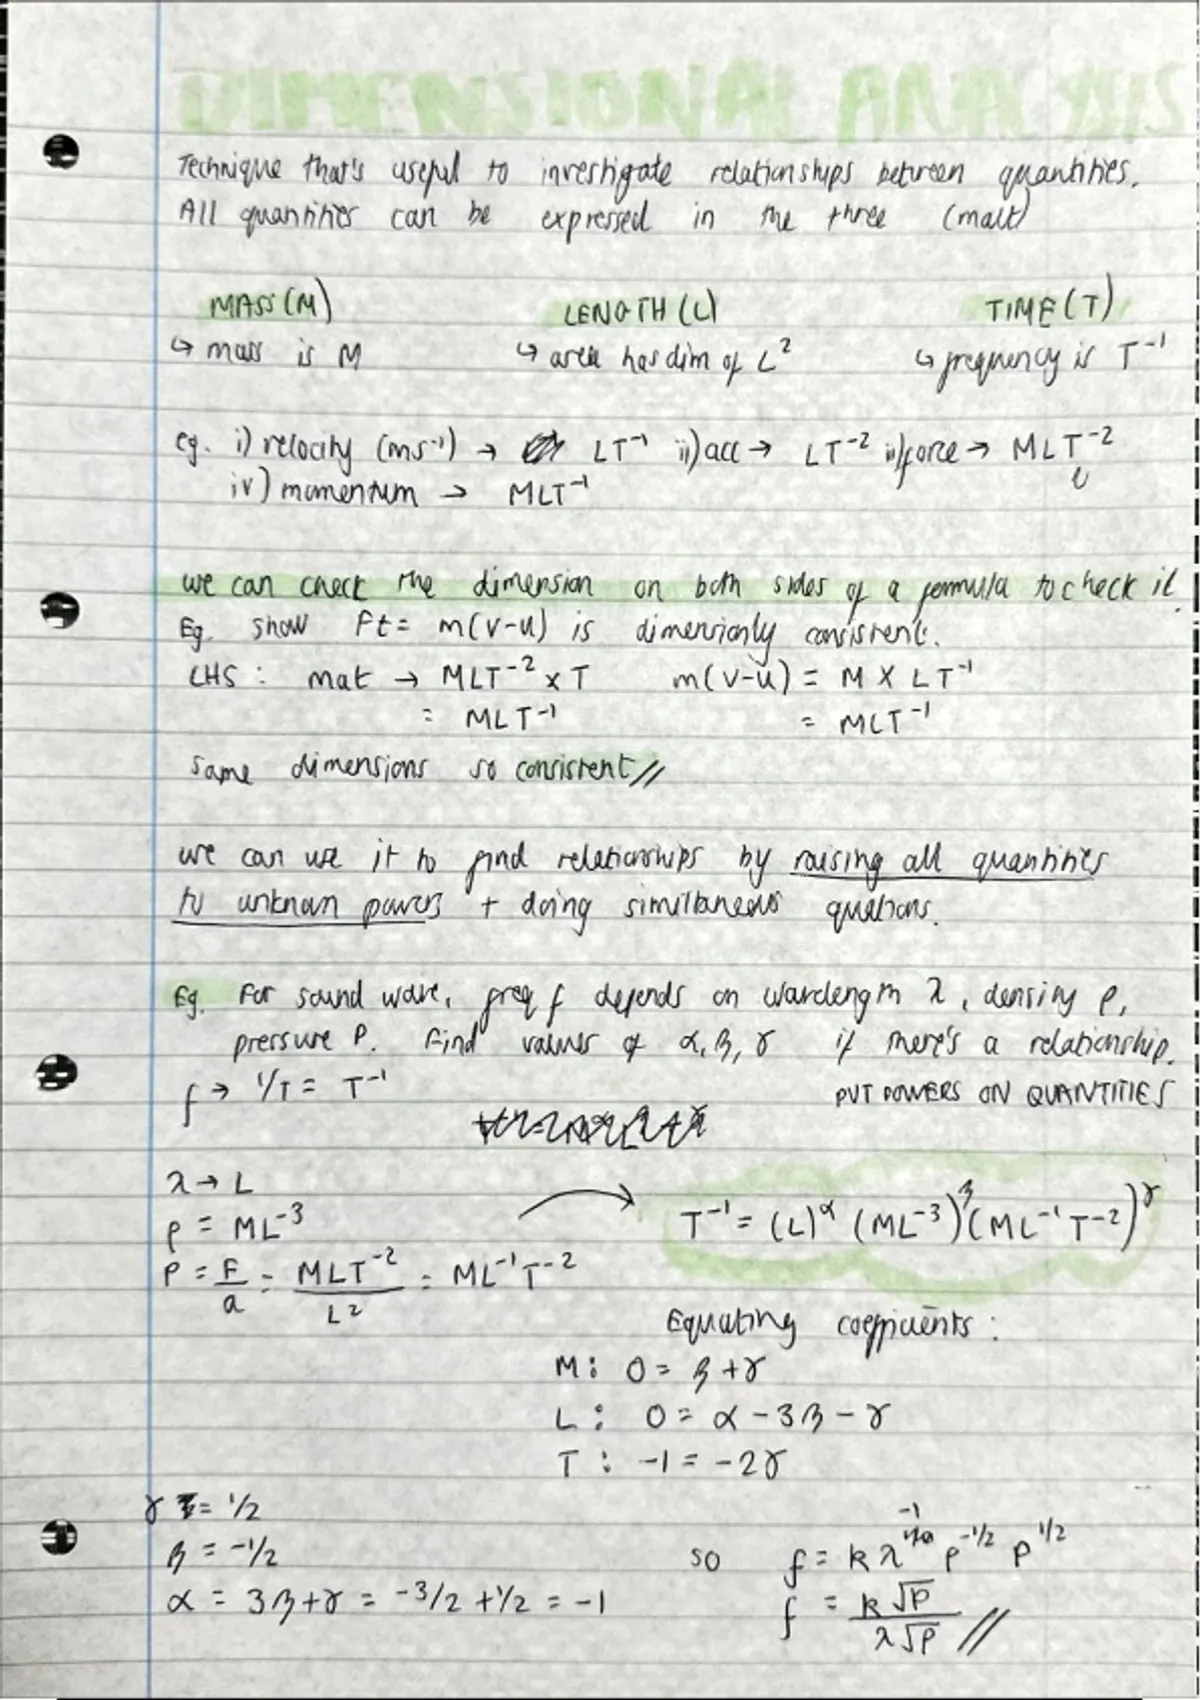 DIMENSIONAL ANALYSIS
Technique that's useful to investigate relationships between quantities.
All quantities can be expressed in the three (malt)
MASS (M) LENGTH (L) TIME (T)
↳ mass is M ↳ area has dim of L² ↳ frequency is T⁻¹
eg. i) velocity (ms⁻¹) → LT⁻¹ ii) acc → LT⁻² iii) force → MLT⁻²
iv) momentum → MLT⁻¹
we can check the dimension on both sides of a formula to check it.
Eg. show Ft = m(v-u) is dimensionly consistent.
LHS : mat → MLT⁻² × T m(v-u) = M × LT⁻¹
= MLT⁻¹ = MLT⁻¹
same dimensions so consistent //
we can use it to find relationships by raising all quantities
to unknown powers + doing simultaneous quations.
Eg. For sound wave, freq f depends on wavelength λ, density ρ,
pressure P. Find values of α, β, γ if there's a relationship.
f → 1/T = T⁻¹ PUT POWERS ON QUANTITIES
λ → L
ρ = ML⁻³ T⁻¹ = (L)^α (ML⁻³)^β (ML⁻¹T⁻²)^γ
P = F/a = MLT⁻²/L² = ML⁻¹T⁻²
Equating coefficients :
M : 0 = β + γ
L : 0 = α - 3β - γ
T : -1 = -2γ
γ = 1/2
β = -1/2 so f = kλ⁻¹ ρ^-1/2 P^1/2
α = 3β + γ = -3/2 + 1/2 = -1 f = k√P/λ√ρ //